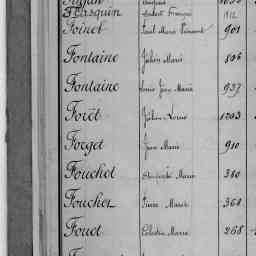 Flasquin Hubert François 1812
Foinet Paul Marie 901
Fontaine Julien Marie 806
Fontaine Louis Jean Marie 937
Forêt Julien Louis 1203
Forget Jean Marie 910
Fouchet Marie 380
Foucher Pierre Marie 368
Fouet Célestin Marie 268